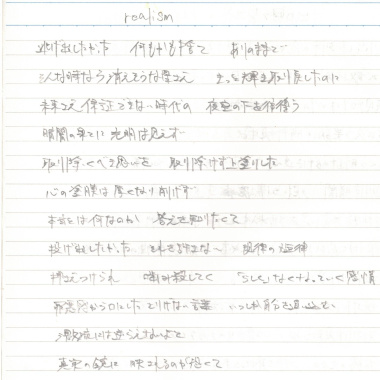 realism
逃げ出したかった 何もかも捨て ありのままで
こんな時なら消えそうな夢さえ きっと輝き取り戻したのに
未来さえ保証できない時代の 夜空の下を彷徨う
暗闇の果てに光明は見えず
取り除くべき思いを 取り除けず上塗りした
心の塗膜は厚くなり剥げず
本当とは何なのか 答えを知りたくて
投げ出したかった それを許さない 規律の旋律
押さえつけられ 噛み殺してく 「らしく」なくなっていく感情
口にした とりけない言葉 いつしか自分を追い込む
激流には逆らえないまま
真実の鏡に 映されるのが怖くて